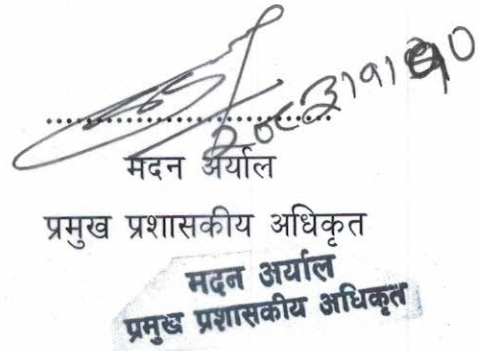 ..............................
मदन अर्याल
प्रमुख प्रशासकीय अधिकृत
मदन अर्याल
प्रमुख प्रशासकीय अधिकृत